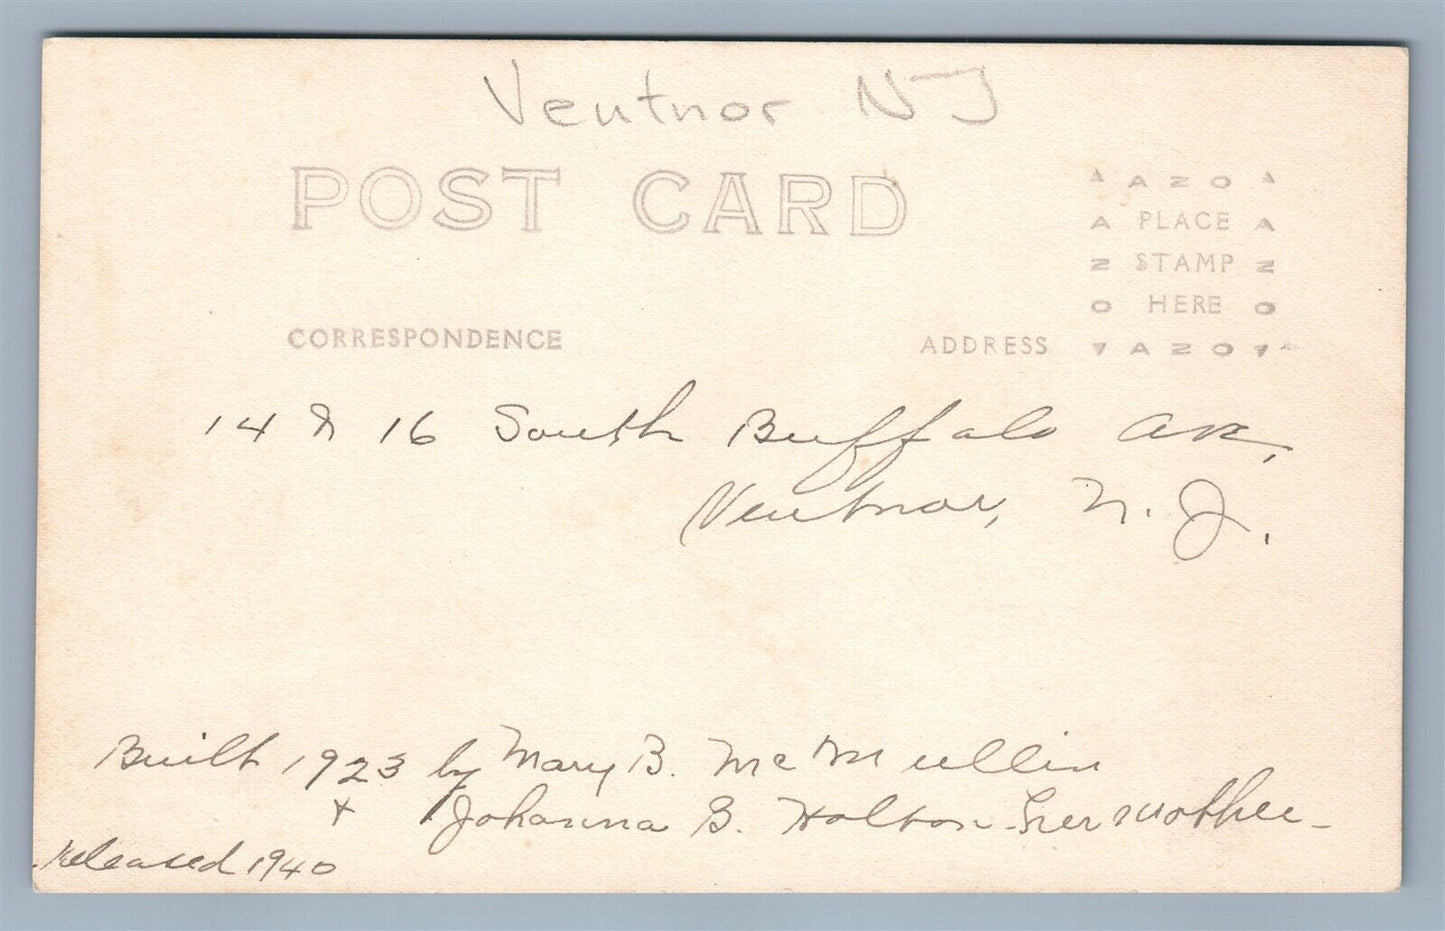 Ventnor NJ
POST CARD
AZO
A PLACE A
Z STAMP Z
O HERE O
AZO
CORRESPONDENCE
ADDRESS
14 & 16 South Buffalo Ave,
Ventnor, N. J.
Built 1923 by Mary B. McMullin
+ Johanna G. Holton - her mother -
released 1940